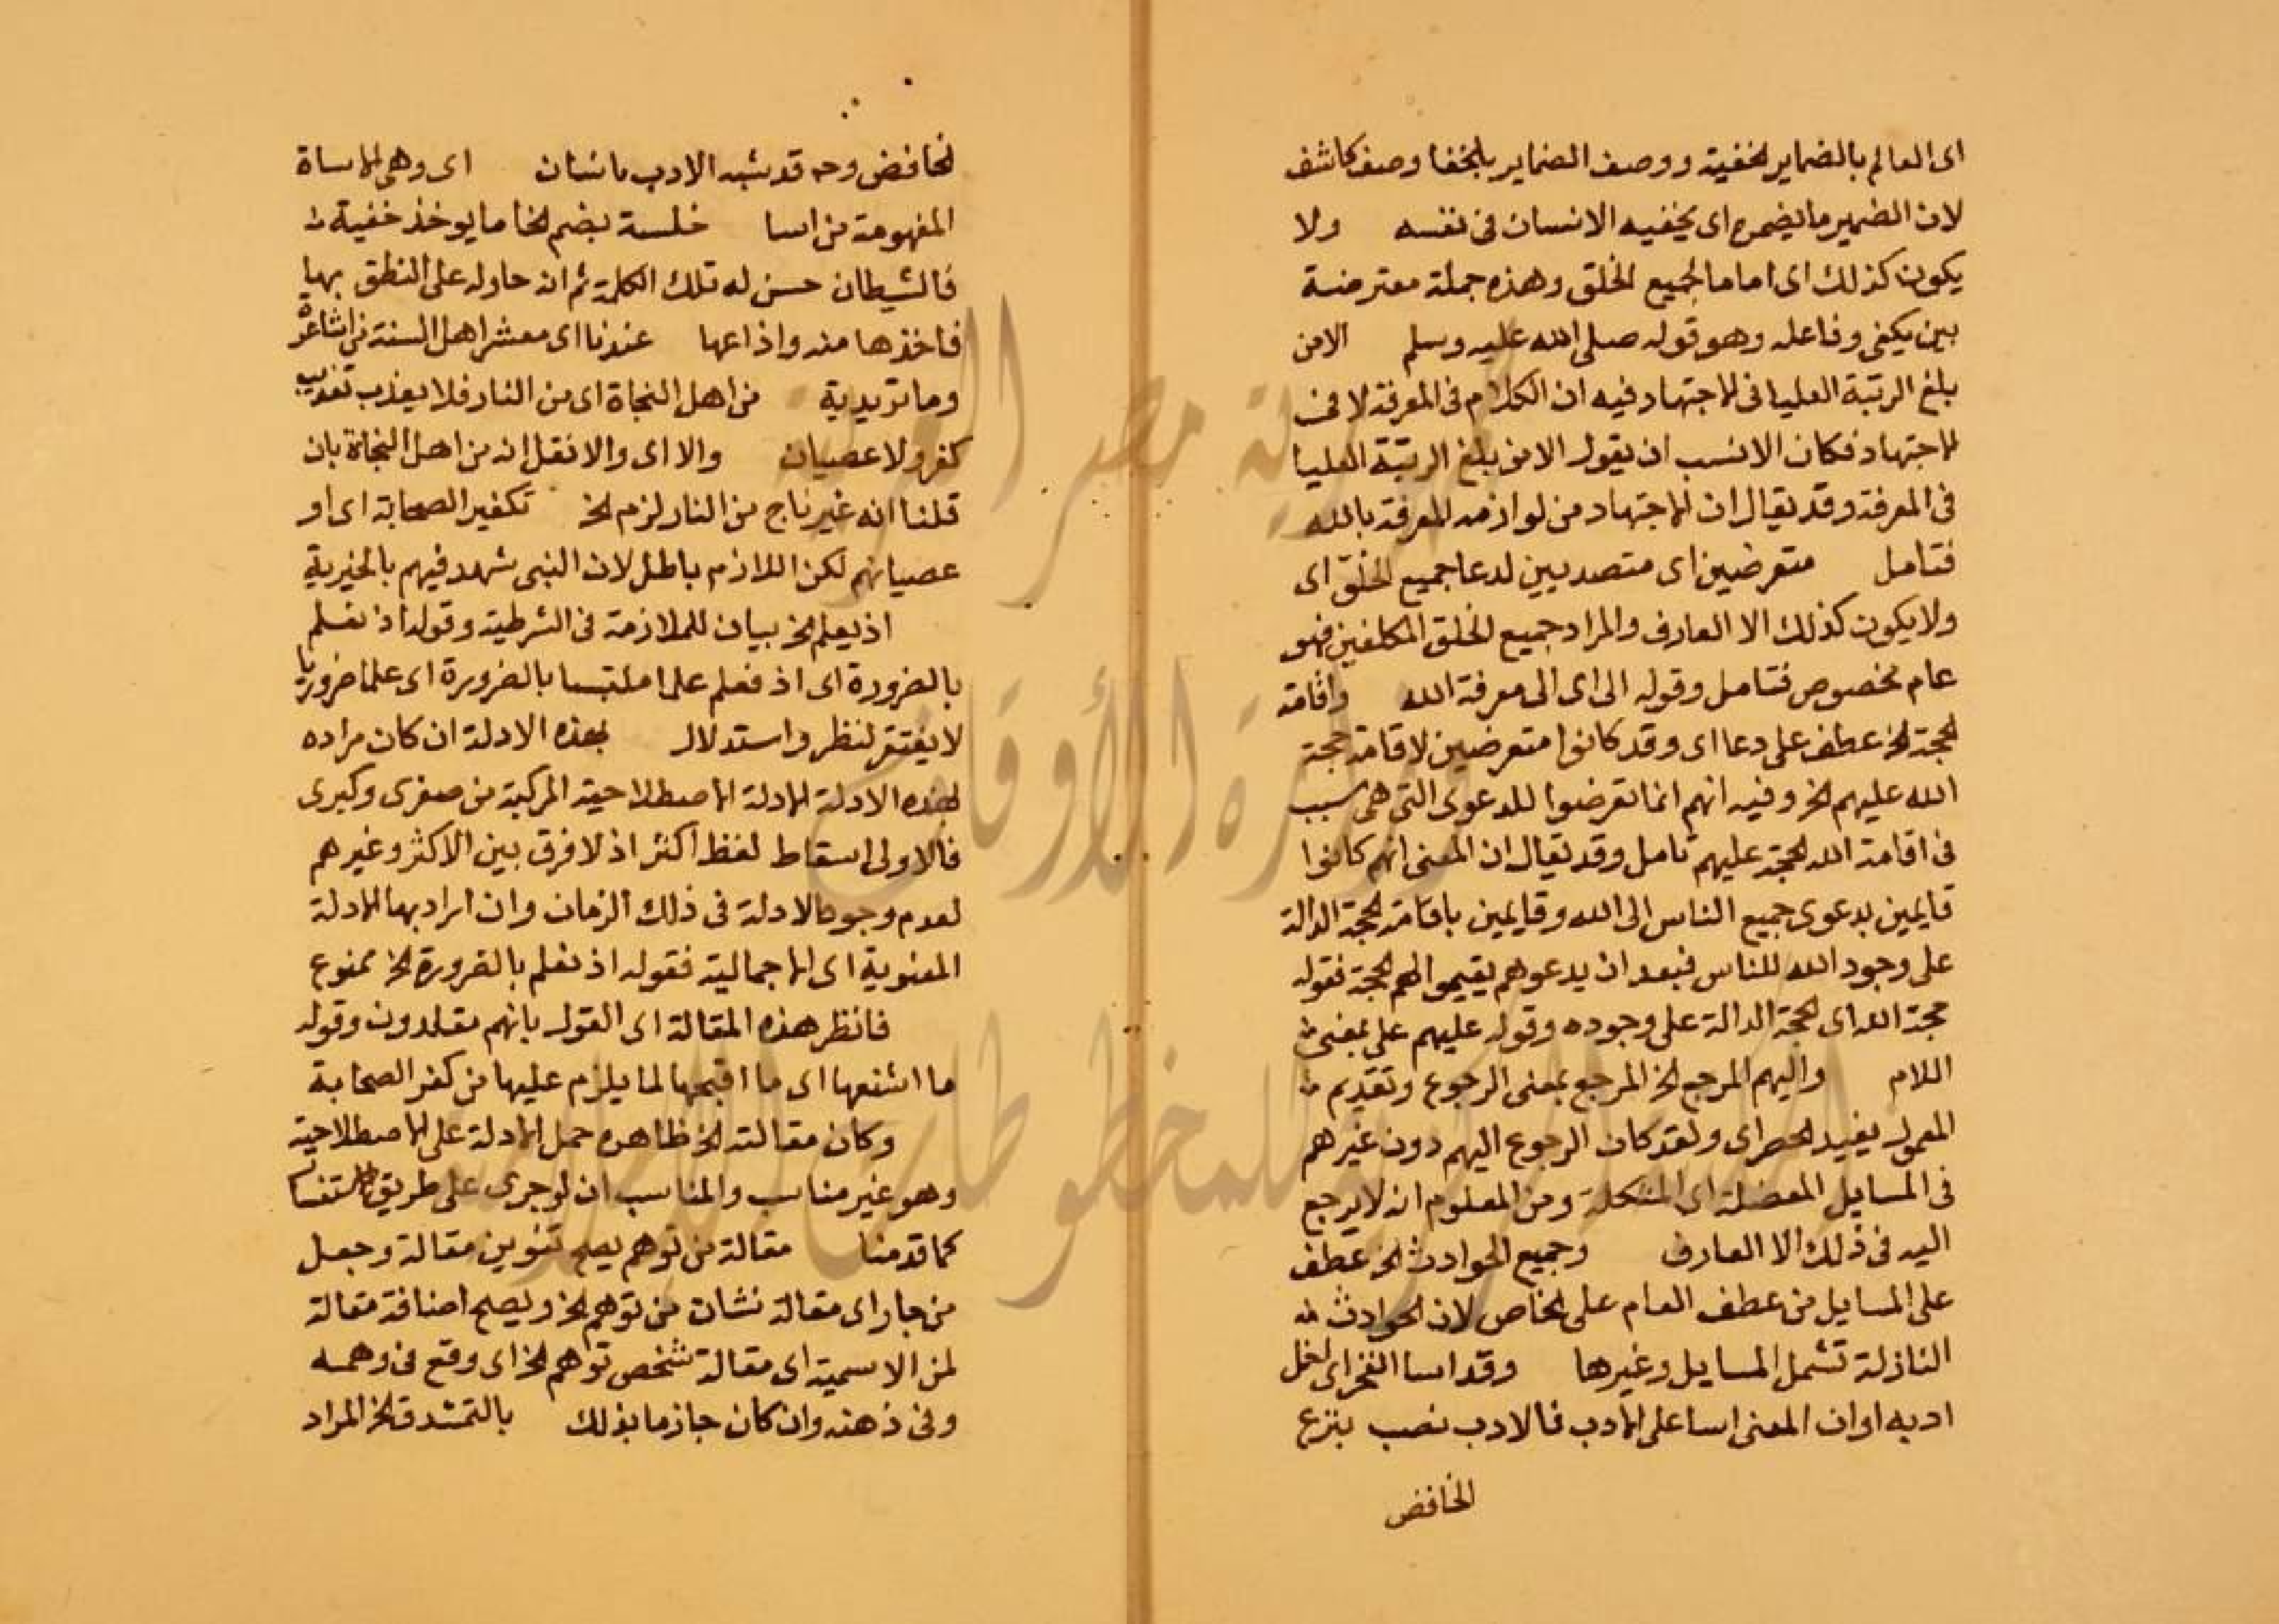 اى العالم بالضماير الخفية ووصف الضماير بالخفا وصف كاشف
لان الضمير ما يضمره اى يخفيه الانسان فى نفسه ولا
يكون كذلك اى اماما لجميع الخلق وهذه جملة معترضة
بين يكفى وفاعله وهو قوله صلى الله عليه وسلم الا من
بلغ الرتبة العليا فى الاجتهاد فيه ان الكلام فى المعرفة لا فى
الاجتهاد فكان الانسب ان يقول الا من بلغ الرتبة العليا
فى المعرفة وقد يقال ان الاجتهاد من لوازمه المعرفة بالله
فتامل متعرضين اى متصديين لدعا جميع الخلق اى
ولا يكون كذلك الا العارف والمراد جميع الخلق المكلفين فهو
عام مخصوص فتامل وقوله الى اى الى معرفة الله واقامة
الحجة الخ عطف على دعا اى وقد كانوا متعرضين لاقامة حجة
الله عليهم الخ وفيه انهم انما تعرضوا للدعوى التى هى سبب
فى اقامة الله الحجة عليهم تامل وقد يقال ان المعنى انهم كانوا
قايمين بدعوى جميع الناس الى الله وقايمين باقامة الحجة الدالة
على وجود الله للناس فبعد ان يدعوهم يقيموا لهم الحجة فقوله
حجة الله اى الحجة الدالة على وجوده وقوله عليهم على بمعنى
اللام واليهم المرجع الخ المرجع بمعنى الرجوع وتقديم
المعمول يفيد الحصر اى ولقد كان الرجوع اليهم دون غيرهم
فى المسايل المعضلة اى المشكلة ومن المعلوم انه لا يرجع
اليه فى ذلك الا العارف وجميع الحوادث الخ عطف
على المسايل من عطف العام على الخاص لان الحوادث
النازلة تشمل المسايل وغيرها وقد اسا الفخر اى
ادبه او ان المعنى اسا على الادب فالادب نصب بنزع
الخافض
الخافض وح قد شبه الادب بانسان اى وهى الاساة
المفهومة من اسا خلسة بضم الخا ما يوخذ خفية
فالشيطان حسن له تلك الكلمة ثم انه حاوله على النطق بها
فاخذها منه واذاعها عندنا اى معشر اهل السنة من اشاعرة
وماتريدية من اهل النجاة اى من النار فلا يعذب تعذيب
كفر ولا عصيان والا اى والا نقل انه من اهل النجاة بان
قلنا انه غير ناج من النار لزم الخ تكفير الصحابة اى او
عصيانهم لكن اللازم باطل لان النبى شهد فيهم بالخيرية
اذ يعلم الخ بيان للملازمة فى الشرطية وقوله اذ نعلم
بالضرورة اى اذ نعلم علما ملتبسا بالضرورة اى علما ضروريا
لا يفتقر لنظر واستدلال بهذه الادلة ان كان مراده
بهذه الادلة الادلة الاصطلاحية المركبة من صغرى وكبرى
فالاولى اسقاط لفظ اكثر اذ لا فرق بين الاكثر وغيرهم
لعدم وجود الادلة فى ذلك الزمان وان اراد بها الادلة
المعنوية اى الاجمالية فقوله اذ نعلم بالضرورة الخ ممنوع
فانظر هذه المقالة اى القول بانهم مقلدون وقوله
ما اشنعها اى ما اقبحها لما يلزم عليها من كفر الصحابة
وكان مقالته الخ ظاهره حمل الادلة على الاصطلاحية
وهو غير مناسب والمناسب ان لو جرى على طريق
كما قدمنا مقالة من توهم يصح تنوين مقالة وجعل
من جار اى مقالة نشات من توهم الخ ويصح اضافة مقالة
لمن الاسمية اى مقالة شخص توهم الخ اى وقع فى وهمه
وفى ذهنه وان كان جازما بذلك بالتمشدق الخ المراد